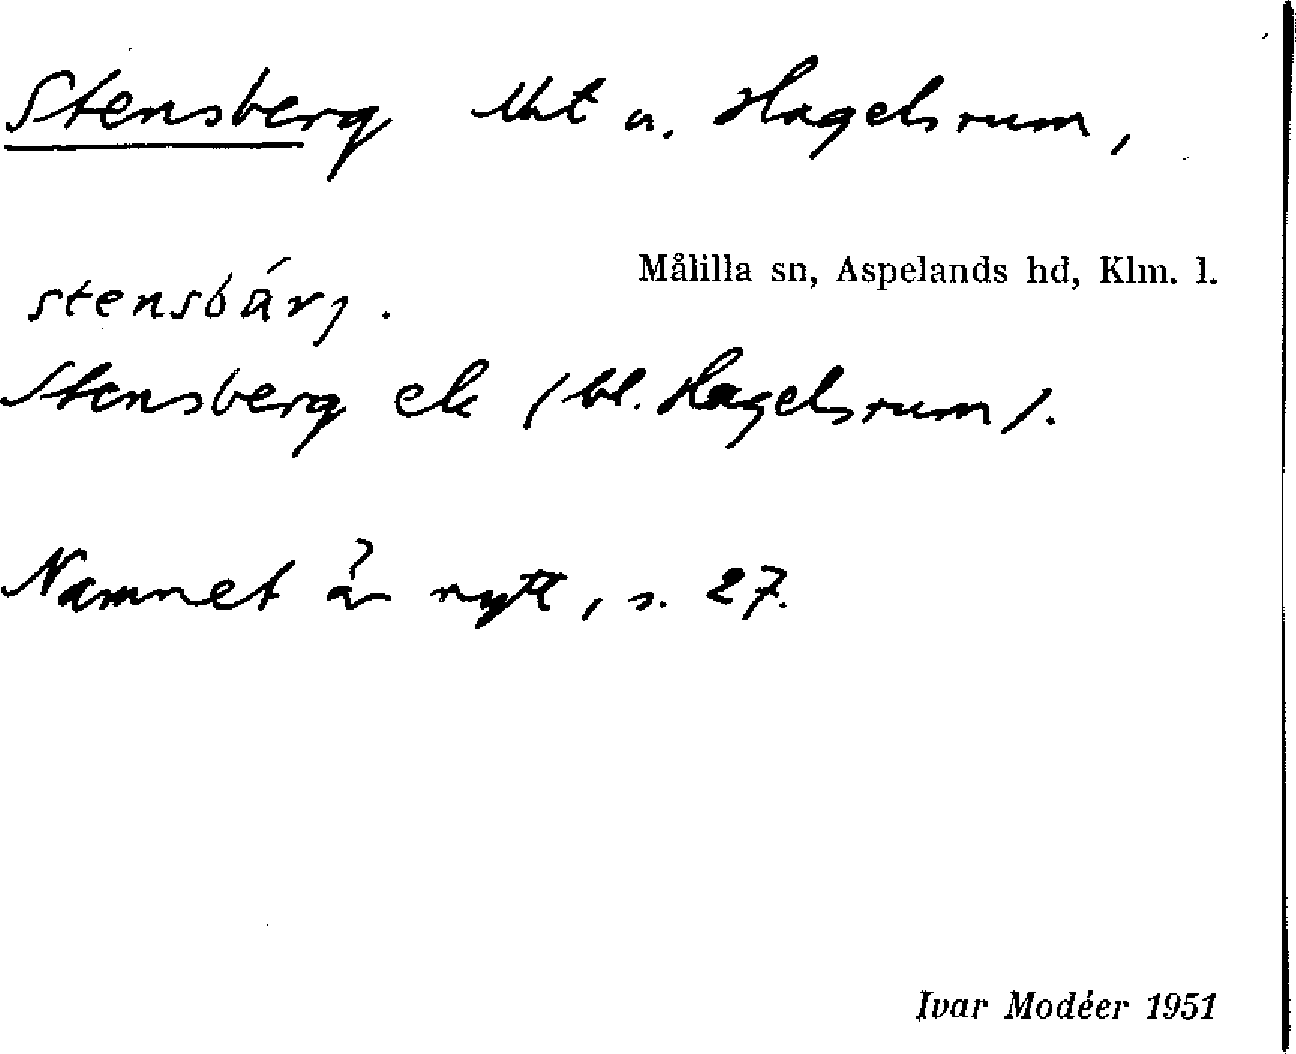 Stensberg lht u. Hagelsrum,
Målilla sn, Aspelands hd, Klm. l.
stensbárj.
Stensberg ek (bl. Hagelsrum).
Namnet är nytt, s. 27.
Ivar Modéer 1951